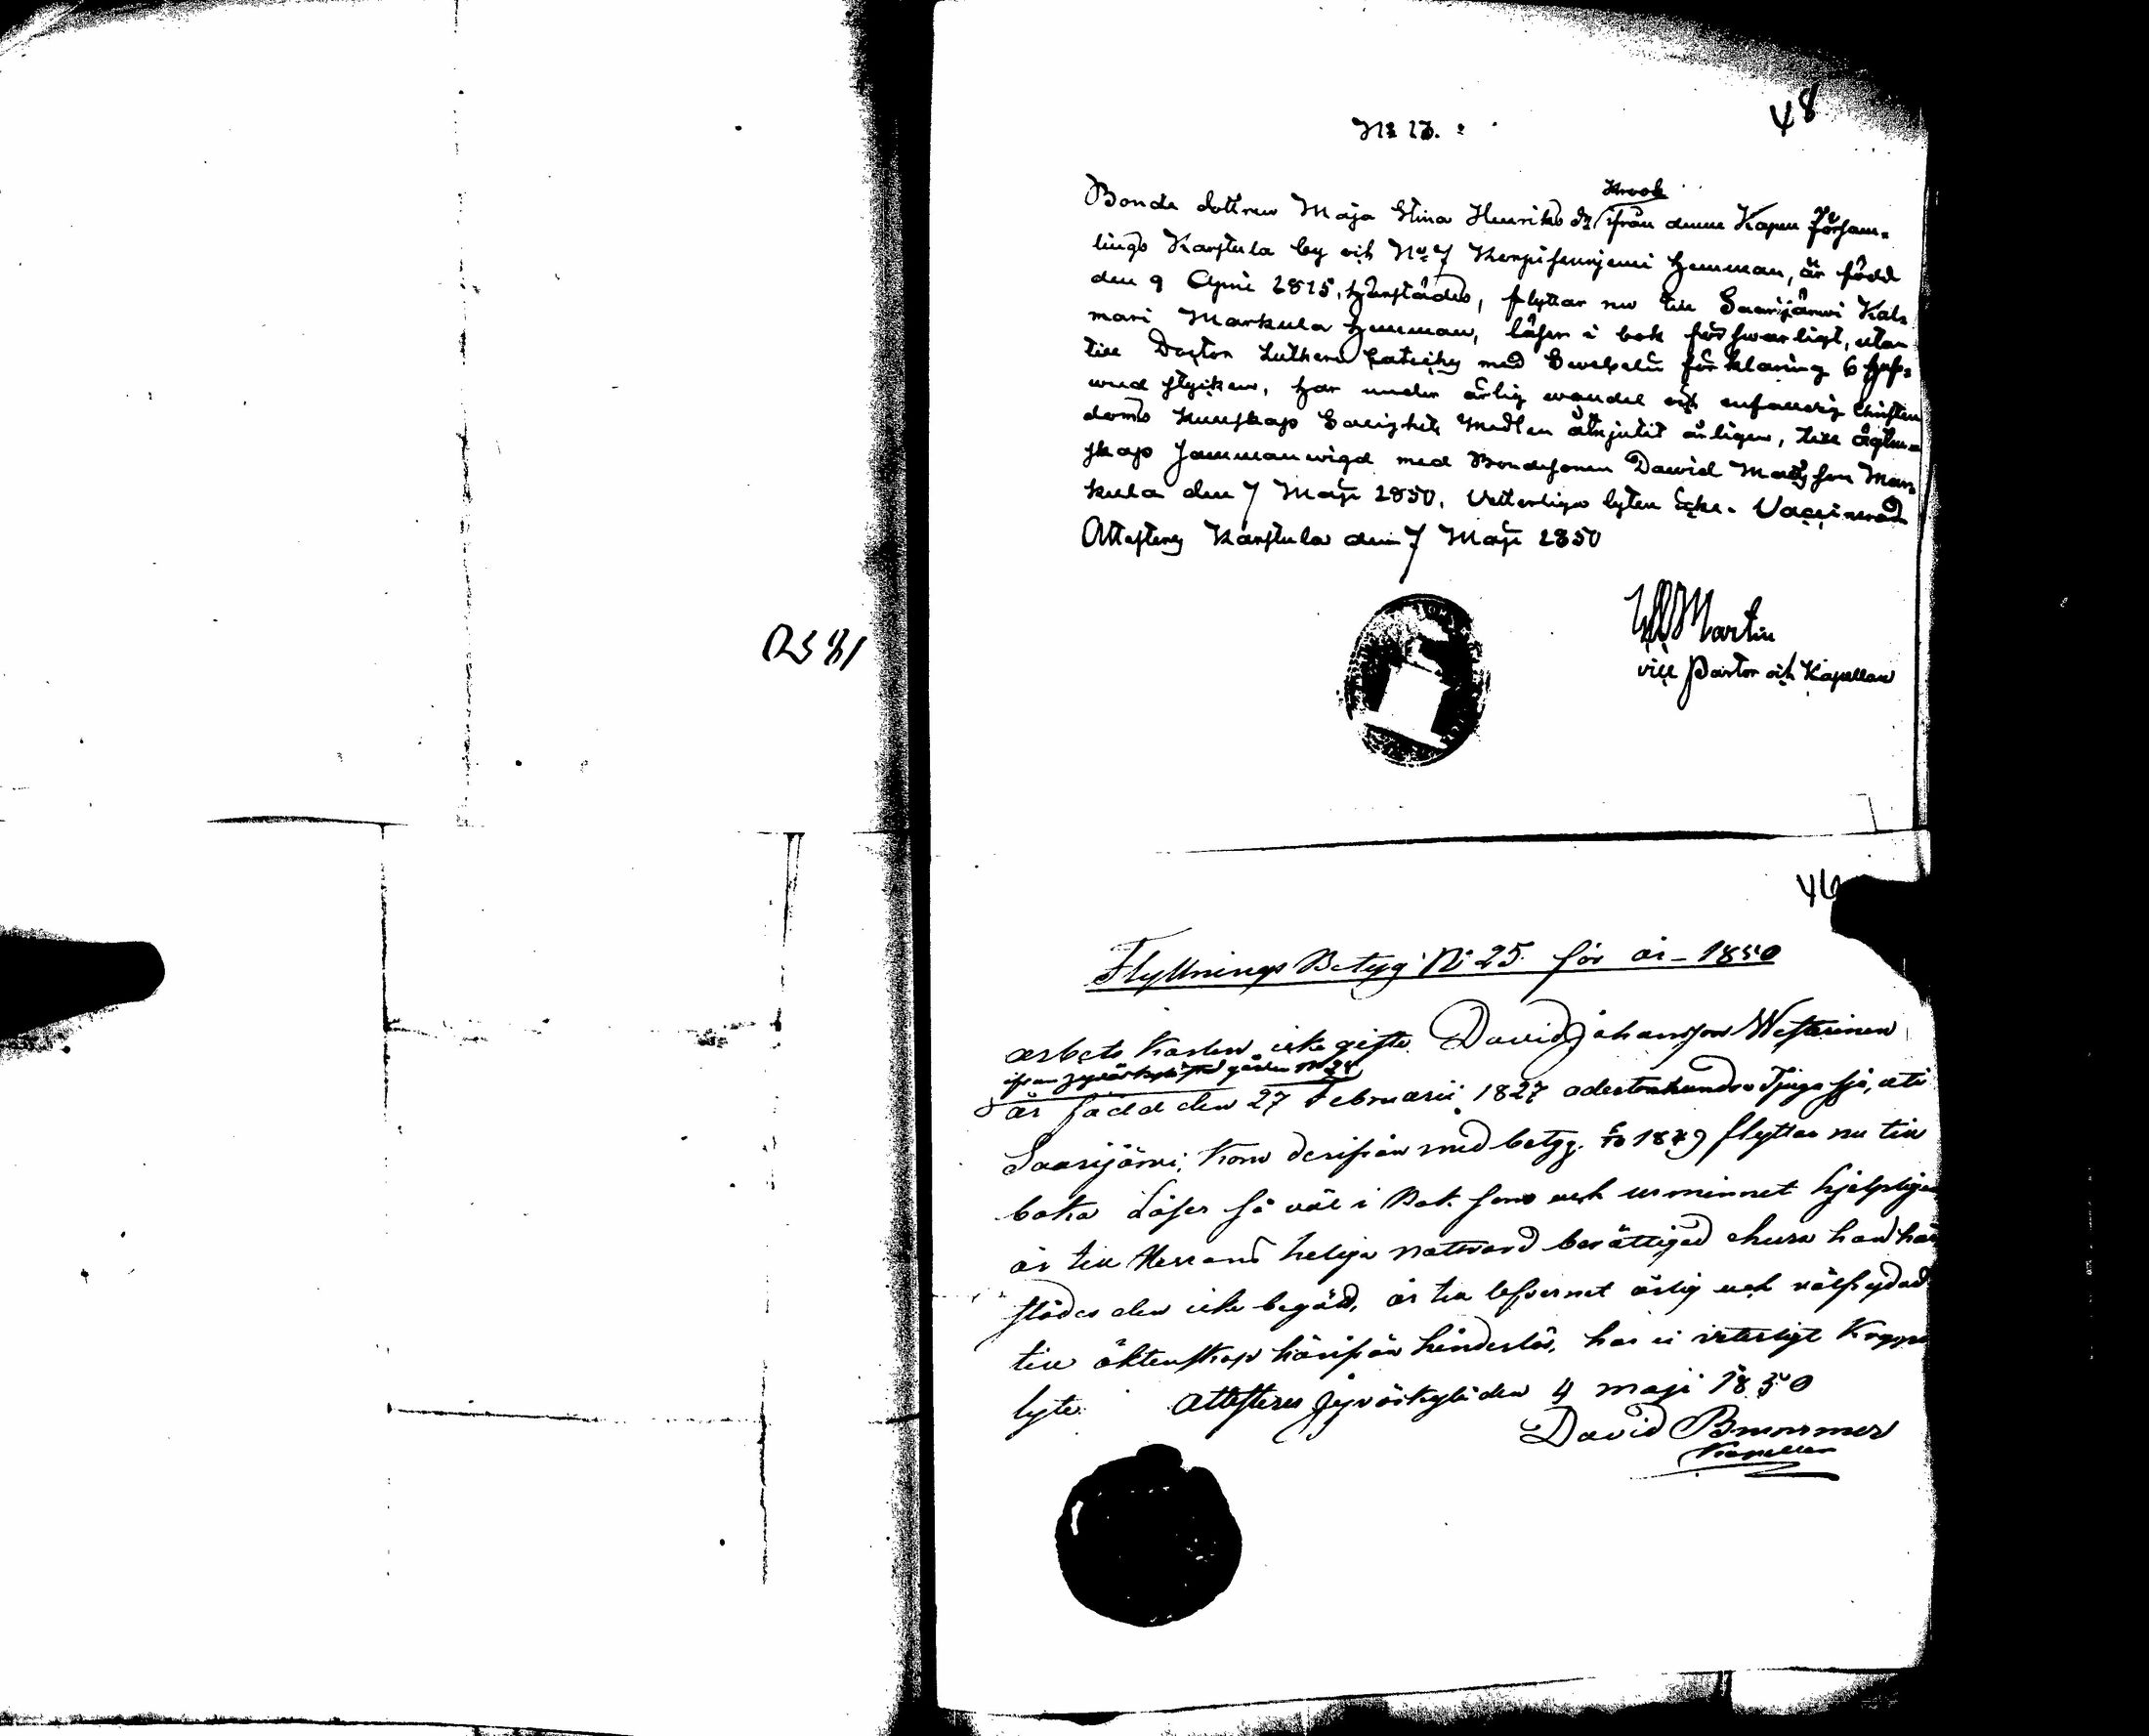 48
No 13.
Krook
Bonde dottren Maja Stina Henriks dr ifrån denna Kapell Försam-
lings Karstula by och No 7 hemman, är född
den 9 April 1815, härstädes, flyttar nu till Saarijärwi Kal-
mari Markula hemman, läser i bok förswarligt, utan
till Doctor Lutheri Cateches med Swebelii förklaring 6 huf-
wud stycken, har under ärlig wandel och enfaldig Christen
doms kunskap Salighets Medlen åtnjutit årligen, till ägten-
skap sammanwigd med Bondesonen Dawid Matts son Mar-
kula den 7 Maji 1850. Vetterliga lyten icke. Vaccinerad
Attesteras Karstula den 7 Maji 1850
Martin
vice Pastor och Kapellan
1850
46
Flyttnings Betyg No 25 för år - 1850
arbets karlen icke gifte David Johansson Westerinen
ifrån Jyväskylä gården No 24
är född den 27 Februarii 1827 adertonhundra Tjugo sju, uti
Saarijärvi, kom derifrån med betyg 1849 flyttar nu till
baka Läser så väl i Bok som och ur minnet hjelpligen
är till Herrans heliga nattvard berättigad ehuru han här
städes den icke begått, är till lefvernet ärlig och välfrejdad
till äktenskap härifrån hinderlös, har ei veterligt kropps
lyte. Attesteras Jyväskylä den 4 maji 1850
David Brummer
Kapellan